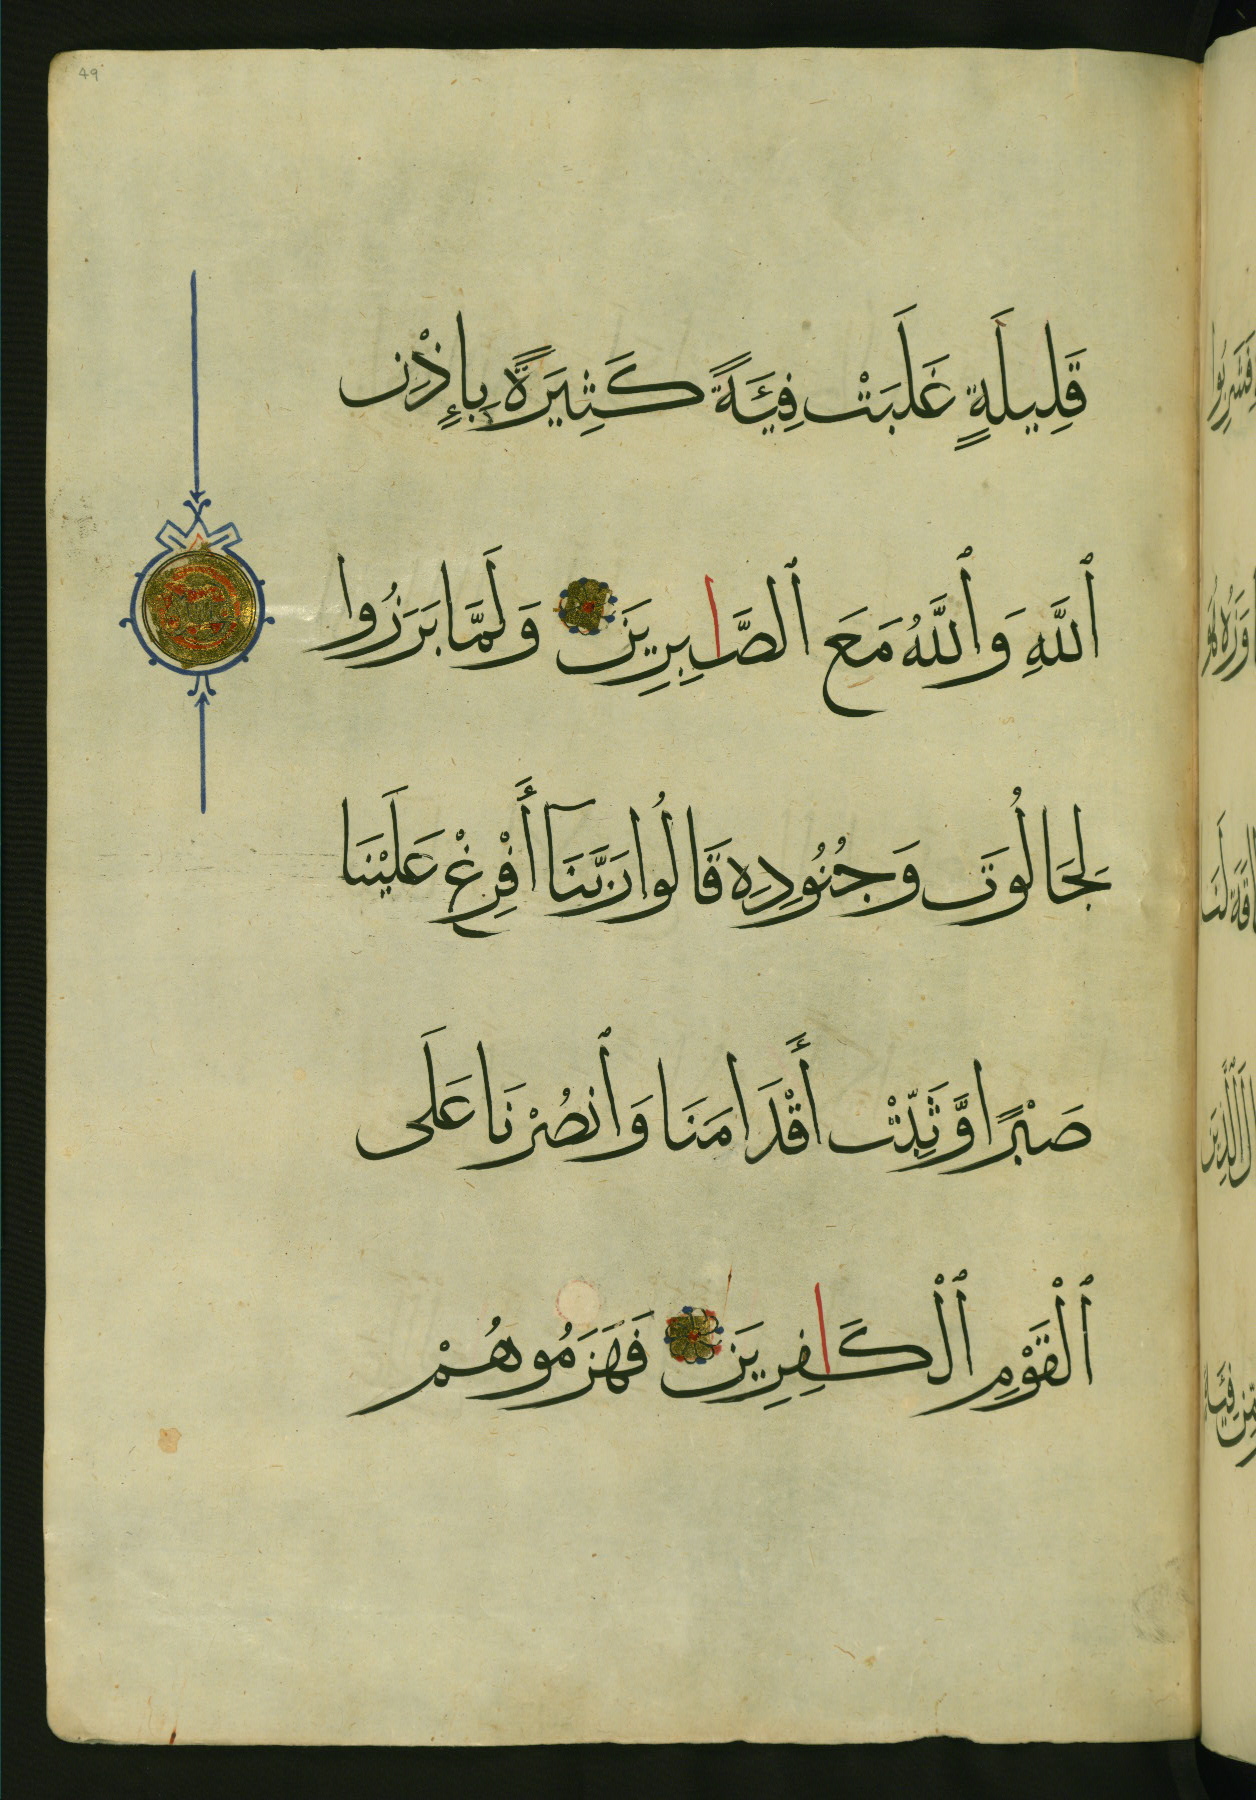 قَلِيلَةٍ غَلَبَتْ فِئَةً كَثِيرَةً بِإِذْنِ
ٱللَّهِ وَٱللَّهُ مَعَ ٱلصَّابِرِينَ وَلَمَّا بَرَزُوا
لِجَالُوتَ وَجُنُودِهِ قَالُوا رَبَّنَآ أَفْرِغْ عَلَيْنَا
صَبْرًا وَّثَبِّتْ أَقْدَامَنَا وَٱنصُرْنَا عَلَى
ٱلْقَوْمِ ٱلْكَافِرِينَ فَهَزَمُوهُمْ
49